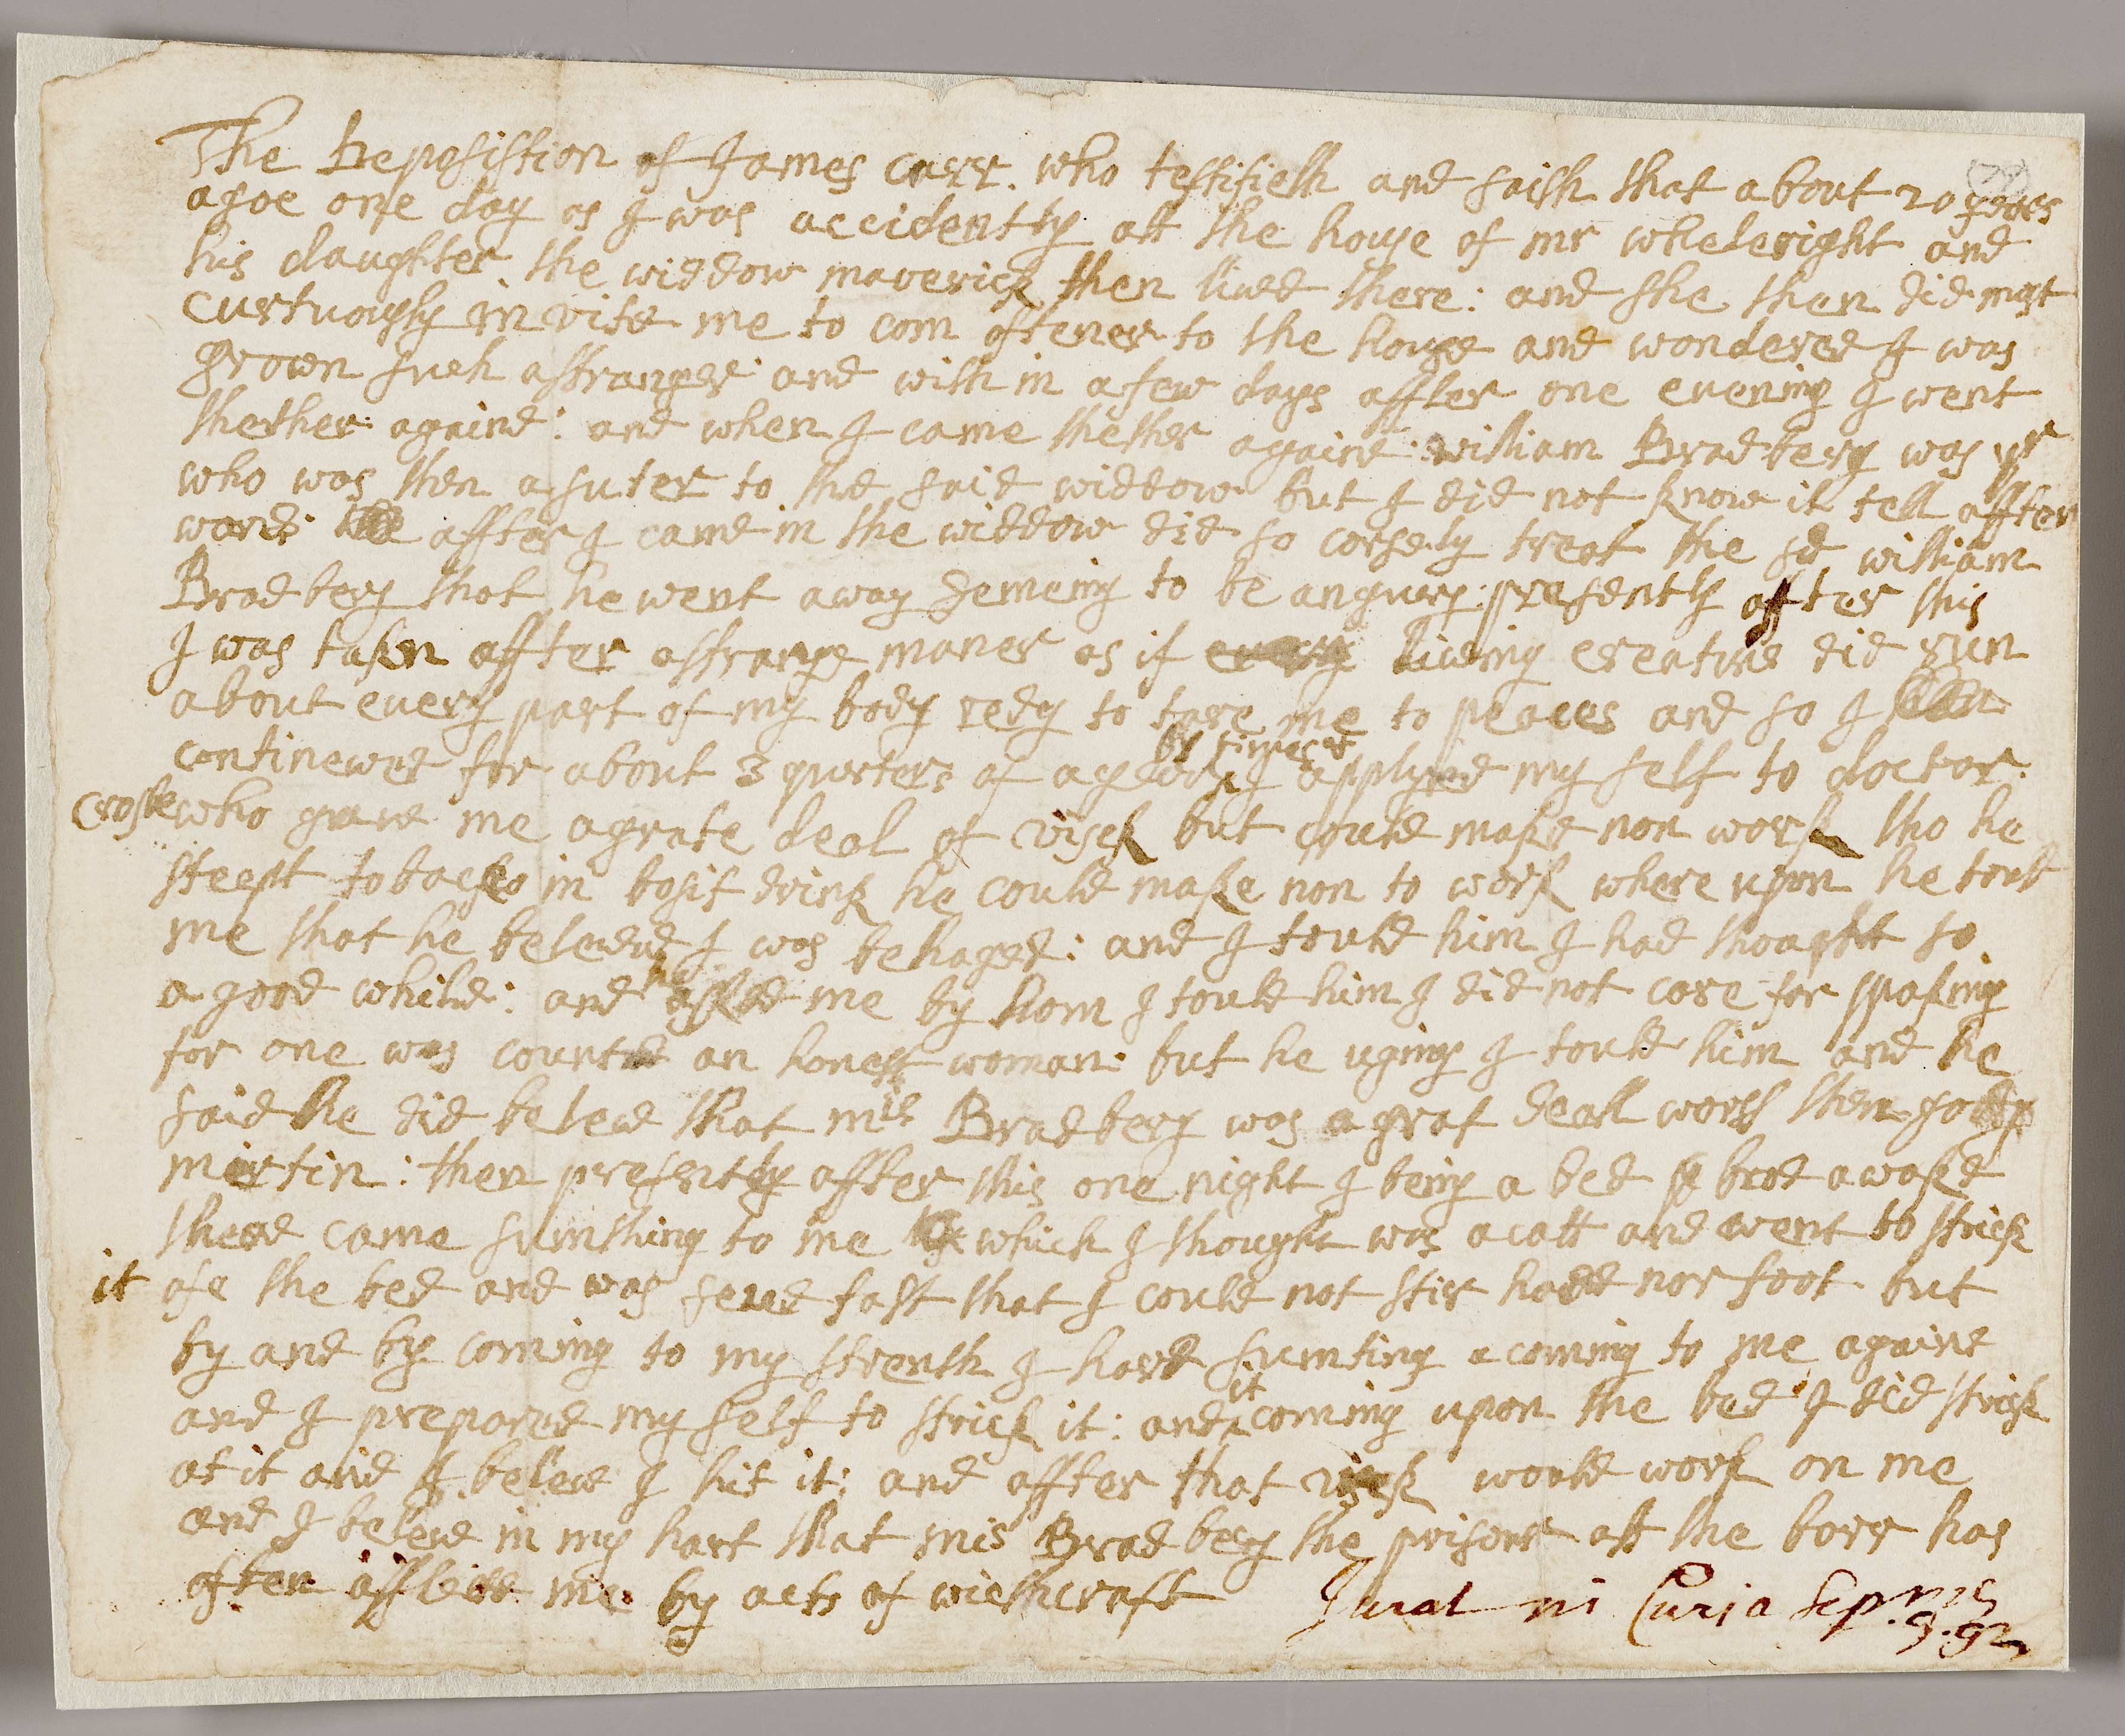 The deposistion of James carr. who testifieth and saith that about 20 years
agoe one day as I was accidently att the house of mr wheleright and
his daughter the widdow maverick then liued there: and she then did most
curtuously invite me to com oftener to the house and wondered I was
grown such a stranger: and with in a few days affter one evening I went
thether againe: and when I came thether againe: william Bradbery was yr
who was then a suter to the said widdow but I did not know it tell affter
wards affter I came in the widdow did so corsely treat the sd william
Bradbery that he went away semeing to be angury: presently affter this
I was taken affter a strange maner as if liueing creaturs did run
about euery part of my body redy to tare me to peaces and so I
continewed for about 3 qurters of a year by times & I applyed my self to doctor
Crosbe who gave me a grate deal of visek but could make non work tho he
steept tobacko in bosit drink he could make non to work where upon he tould
me that he beleved I was behaged: and I tould him I had thought so
a good while: and he asked me by hom I tould him I did not care for spaking
for one was counted an honest woman: but he uging I tould him and he
said he did beleve that mis Bradbery was a grat deall worss then goody
martin: then presently affter this one night I being a bed & brod awake
there came sumthing to me which I thought was a catt and went to strick
it ofe the bed and was sezed fast that I could not stir hand nor foot but
by and by coming to my strenth I hard sumting a coming to me againe
and I prepared my self to strick it: and it coming upon the bed I did strick
at it and I beleve I hit it: and affter that visek would work on me
and I beleve in my hart that mis Bradbery the prisoner att the barr has
often afflicted me by acts of wicthcraft
Jurat in Curia Sepmr
9. 92